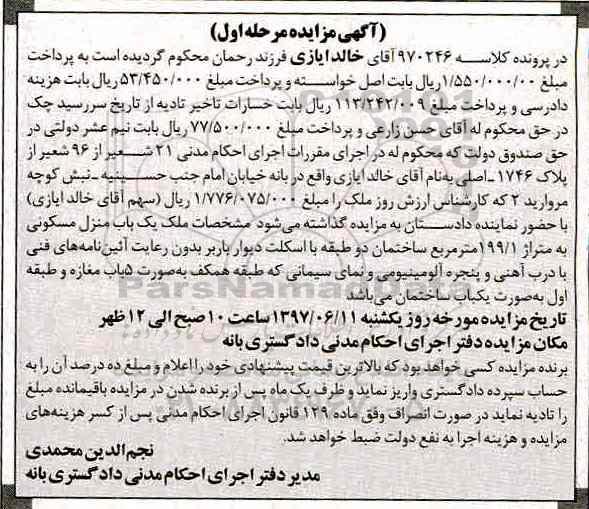 (آگهی مزایده مرحله اول)
در پرونده کلاسه ۹۷۰۲۴۶ آقای خالد ایازی فرزند رحمان محکوم گردیده است به پرداخت
مبلغ ۱/۵۵۰/۰۰۰/۰۰ ریال بابت اصل خواسته و پرداخت مبلغ ۵۳/۴۵۰/۰۰۰ ریال بابت هزینه
دادرسی و پرداخت مبلغ ۱۱۳/۲۴۲/۰۰۹ ریال بابت خسارات تاخیر تادیه از تاریخ سررسید چک
در حق محکوم له آقای حسن زارعی و پرداخت مبلغ ۷۷/۵۰۰/۰۰۰ ریال بابت نیم عشر دولتی در
حق صندوق دولت که محکوم له در اجرای مقررات اجرای احکام مدنی ۲۱ شعیر از ۹۶ شعیر از
پلاک ۱۷۴۶ ـ اصلی به‌نام آقای خالد ایازی واقع در بانه خیابان امام جنب حسینیه ـ نبش کوچه
مروارید ۲ که کارشناس ارزش روز ملک را مبلغ ۱/۷۷۶/۰۷۵/۰۰۰ ریال (سهم آقای خالد ایازی)
با حضور نماینده دادستان به مزایده گذاشته می‌شود مشخصات ملک یک باب منزل مسکونی
به متراژ ۱۹۹/۱ مترمربع ساختمان دو طبقه با اسکلت دیوار باربر بدون رعایت آئین‌نامه‌های فنی
با درب آهنی و پنجره آلومینیومی و نمای سیمانی که طبقه همکف به‌صورت ۵باب مغازه و طبقه
اول به‌صورت یکباب ساختمان می‌باشد
تاریخ مزایده مورخه روز یکشنبه ۱۳۹۷/۰۶/۱۱ ساعت ۱۰ صبح الی ۱۲ ظهر
مکان مزایده دفتر اجرای احکام مدنی دادگستری بانه
برنده مزایده کسی خواهد بود که بالاترین قیمت پیشنهادی خود را اعلام و مبلغ ده درصد آن را به
حساب سپرده دادگستری واریز نماید و ظرف یک ماه پس از برنده شدن در مزایده باقیمانده مبلغ
را تادیه نماید در صورت انصراف وفق ماده ۱۲۹ قانون اجرای احکام مدنی پس از کسر هزینه‌های
مزایده و هزینه اجرا به نفع دولت ضبط خواهد شد.
نجم‌الدین محمدی
مدیر دفتر اجرای احکام مدنی دادگستری بانه
ParsNamadData